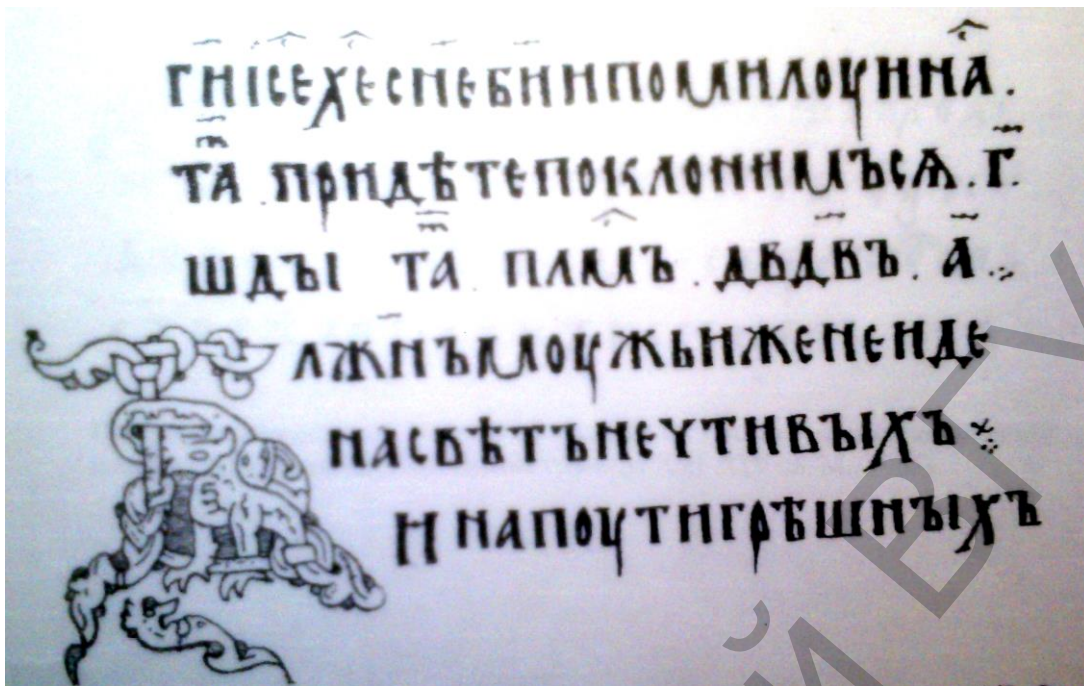 г҃иіс҃ех҃ес҃неб҃иипомилоуина҃с.
та҃т . придѣтепоклонимъсѧ . г҃.
шдъі та҃т . пл҃смъ . дв҃двъ . а҃ ..
Бл҃жнъмоужьиженеиде
насвѣтънечтивъіхъ
инапоутигрѣшнъіхъ
Й ВГУ